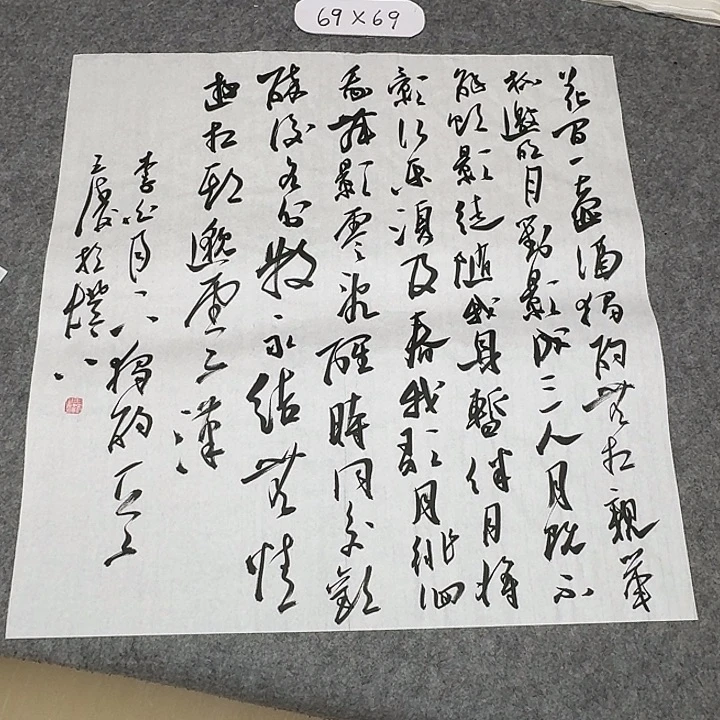 69×69
花間一壺酒獨酌無相親舉
杯邀明月對影成三人月既不
解飲影徒隨我身暫伴月將
影行樂須及春我歌月徘徊
我舞影零亂醒時同交歡
醉後各分散永結無情
遊相期邈雲漢
李白月下獨酌